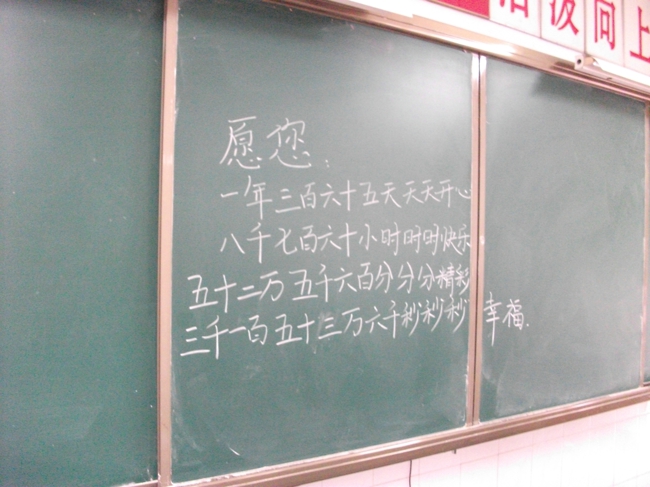 向上
愿您：
一年三百六十五天天天开心
八千七百六十小时时时快乐
五十二万五千六百分分分精彩
三千一百五十三万六千秒秒秒幸福.